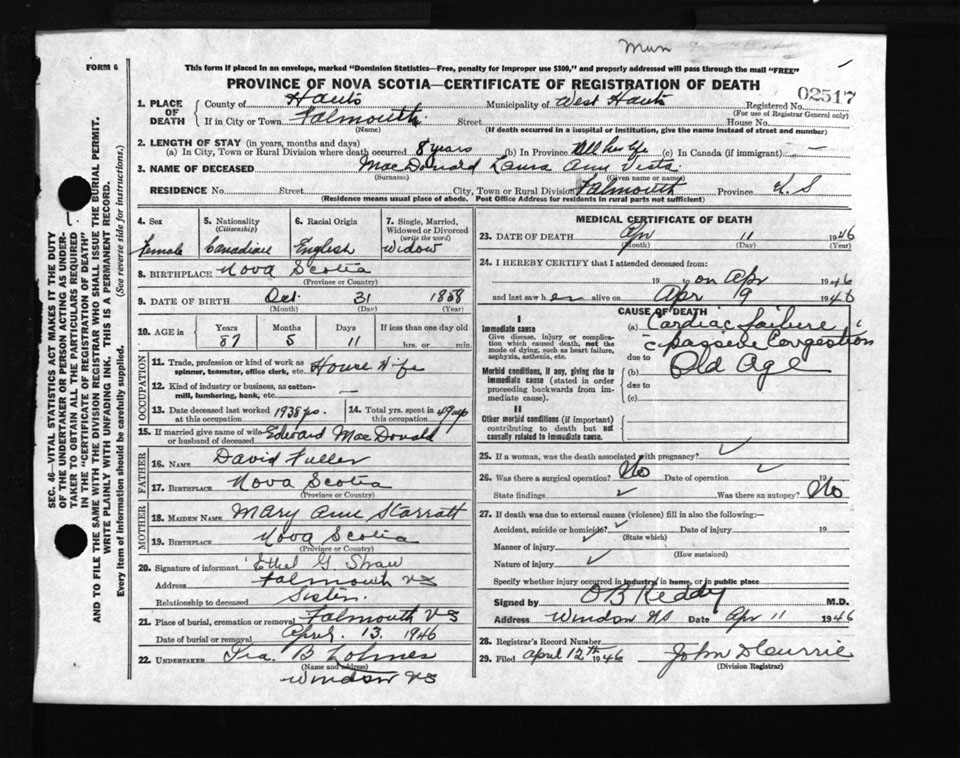 Mun
FORM 6
This form if placed in an envelope, marked "Dominion Statistics—Free, penalty for improper use $300," and properly addressed will pass through the mail "FREE"
PROVINCE OF NOVA SCOTIA—CERTIFICATE OF REGISTRATION OF DEATH
02517
1. PLACE OF DEATH County of Hants Municipality of West Hants Registered No.
(For use of Registrar General only)
If in City or Town Falmouth Street House No.
(Name) (If death occurred in a hospital or institution, give the name instead of street and number)
2. LENGTH OF STAY (in years, months and days)
(a) In City, Town or Rural Division where death occurred 8 years (b) In Province All her life (c) In Canada (if immigrant) —
3. NAME OF DECEASED MacDonald Laura Ann Vista
(Surname) (Given name or names)
RESIDENCE No. Street City, Town or Rural Division Falmouth Province N.S
(Residence means usual place of abode. Post Office Address for residents in rural parts not sufficient)
4. Sex Female
5. Nationality (Citizenship) Canadian
6. Racial Origin English
7. Single, Married, Widowed or Divorced (write the word) Widow
8. BIRTHPLACE Nova Scotia
(Province or Country)
9. DATE OF BIRTH Oct. 31 1858
(Month) (Day) (Year)
10. AGE in Years Months Days If less than one day old
87 5 11 hrs. or min.
OCCUPATION
11. Trade, profession or kind of work as spinner, teamster, office clerk, etc. House Wife
12. Kind of industry or business, as cotton-mill, lumbering, bank, etc.
13. Date deceased last worked at this occupation 1938
14. Total yrs. spent in this occupation 49
15. If married give name of wife or husband of deceased Edward MacDonald
FATHER
16. NAME David Fuller
17. BIRTHPLACE Nova Scotia
(Province or Country)
MOTHER
18. MAIDEN NAME Mary Ann Starratt
19. BIRTHPLACE Nova Scotia
(Province or Country)
20. Signature of informant Ethel G Shaw
Address Falmouth NS
Relationship to deceased Sister.
21. Place of burial, cremation or removal Falmouth NS
Date of burial or removal April. 13. 1946
22. UNDERTAKER Ira. B Lohnes
(Name and address)
Windsor NS
MEDICAL CERTIFICATE OF DEATH
23. DATE OF DEATH Apr 11 1946
(Month) (Day) (Year)
24. I HEREBY CERTIFY that I attended deceased from:
19 to on Apr 1946
and last saw her alive on Apr 9 1946
CAUSE OF DEATH
I
Immediate cause
Give disease, injury or complication which caused death, not the mode of dying, such as heart failure, asphyxia, asthenia, etc.
(a) Cardiac failure
c passive Congestion
due to
Morbid conditions, if any, giving rise to immediate cause (stated in order proceeding backwards from immediate cause).
(b) Old Age
due to
(c)
II
Other morbid conditions (if important) contributing to death but not causally related to immediate cause.
25. If a woman, was the death associated with pregnancy?
26. Was there a surgical operation? No Date of operation 19
State findings Was there an autopsy? No
27. If death was due to external causes (violence) fill in also the following:—
Accident, suicide or homicide? Date of injury 19
(State which)
Manner of injury
(How sustained)
Nature of injury
Specify whether injury occurred in industry, in home, or in public place
Signed by O B Keddy M.D.
Address Windsor NS Date Apr 11 1946
28. Registrar's Record Number
29. Filed April 12th 1946 John D Currie
(Division Registrar)
SEC. 46—VITAL STATISTICS ACT MAKES IT THE DUTY
OF THE UNDERTAKER OR PERSON ACTING AS UNDER-
TAKER TO OBTAIN ALL THE PARTICULARS REQUIRED
IN THE "CERTIFICATE OF REGISTRATION OF DEATH"
AND TO FILE THE SAME WITH THE DIVISION REGISTRAR WHO SHALL ISSUE THE BURIAL PERMIT.
WRITE PLAINLY WITH UNFADING INK. THIS IS A PERMANENT RECORD.
Every item of information should be carefully supplied. (See reverse side for instructions.)